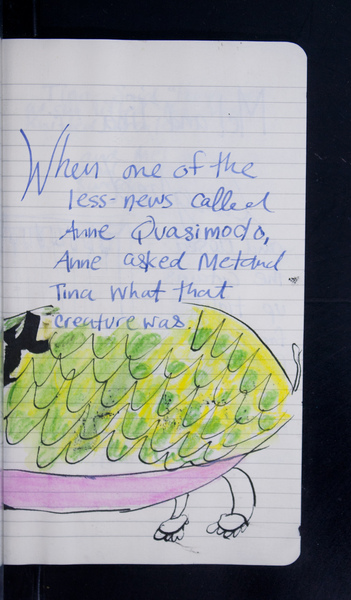 When one of the
less-news called
Anne Quasimodo,
Anne asked Met and
Tina what that
creature was.